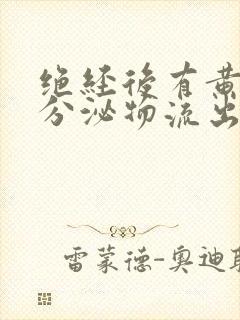 绝经後有黄
分泌物流出
雷蒙德-奥迪